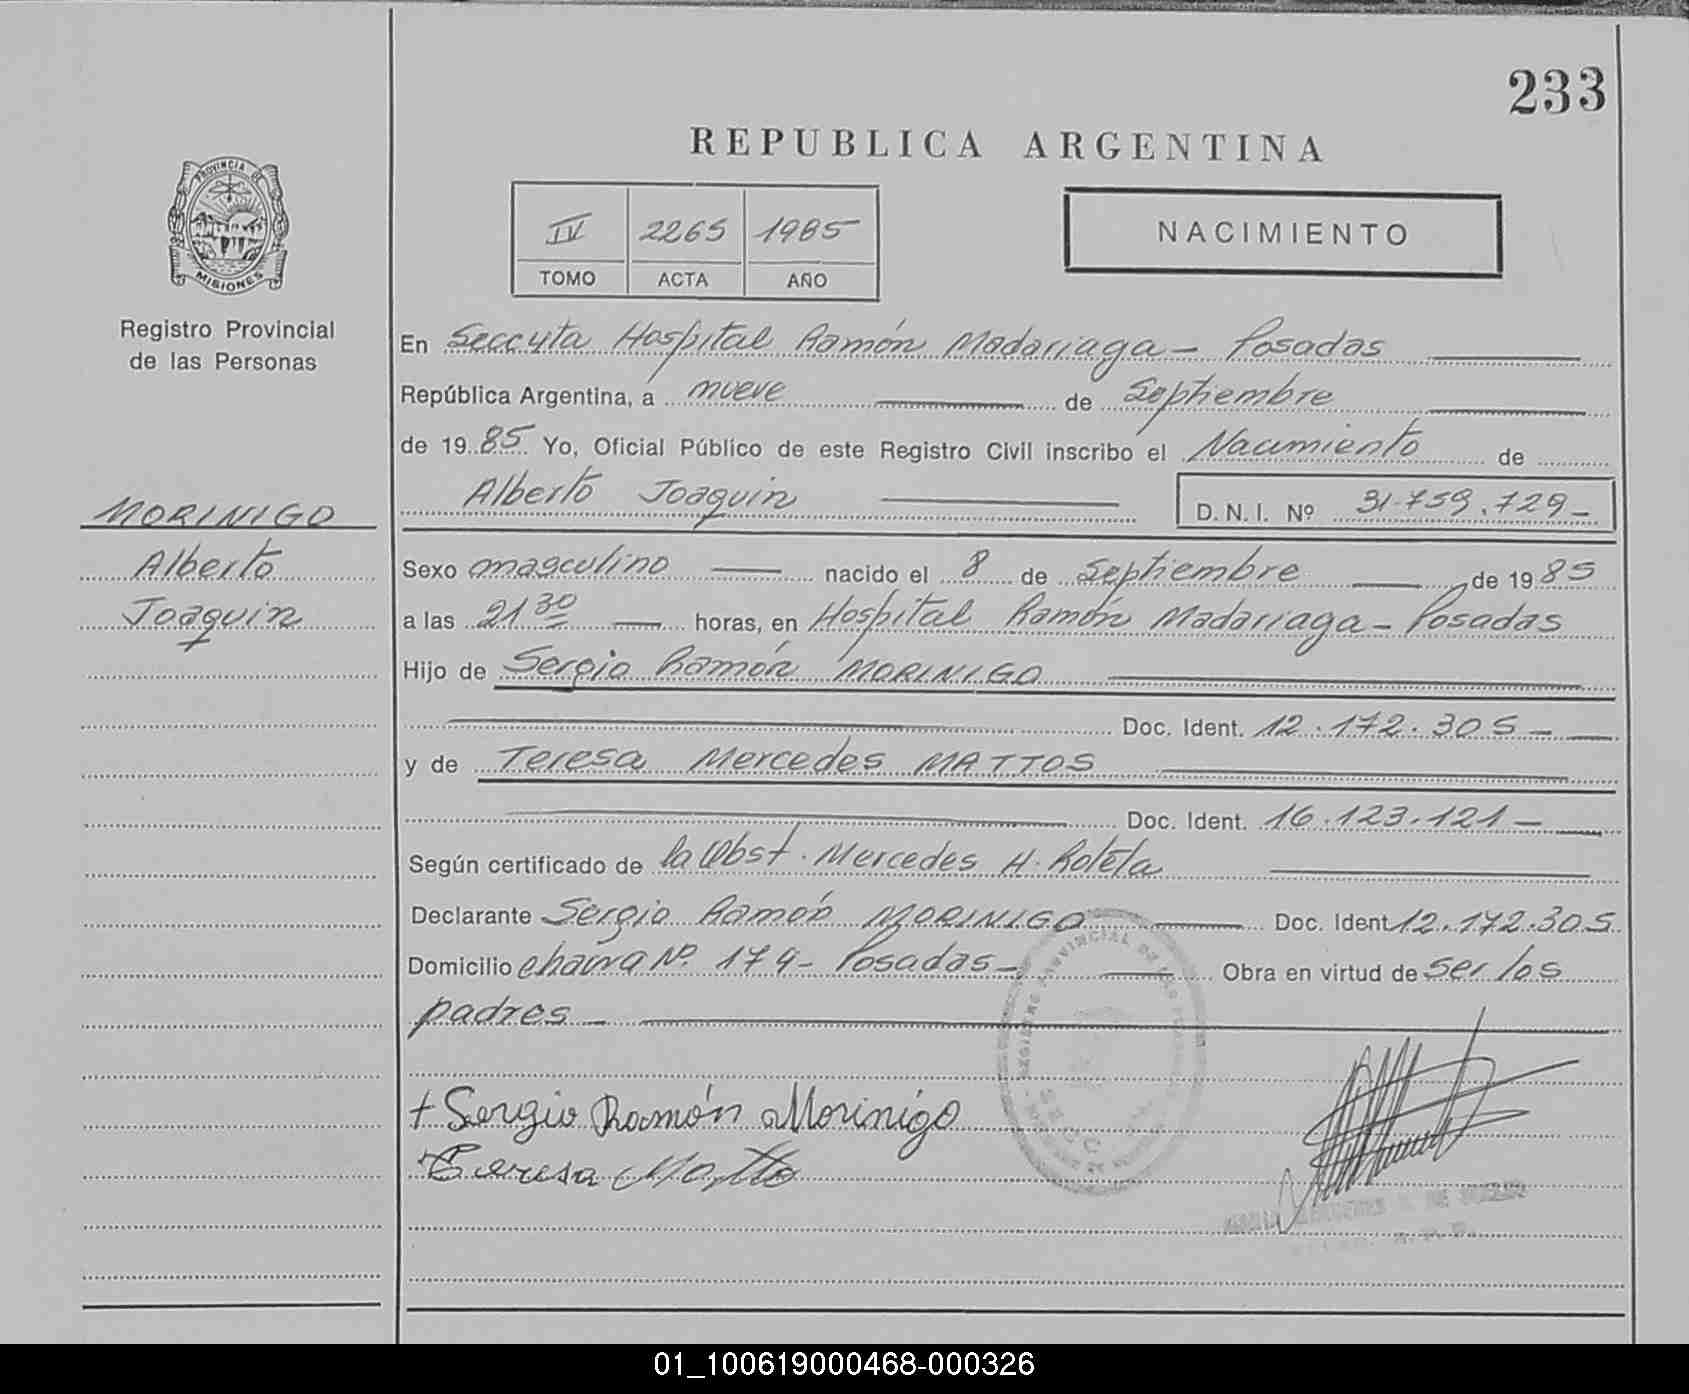 233
REPUBLICA ARGENTINA
PROVINCIA DE
MISIONES
IV 2265 1985
TOMO ACTA AÑO
NACIMIENTO
Registro Provincial
de las Personas
En Seccyta Hospital Ramón Madariaga - Posadas
República Argentina, a nueve de Septiembre
de 1985 Yo, Oficial Público de este Registro Civil inscribo el Nacimiento de
Alberto Joaquin D.N.I. Nº 31.759.729-
MORINIGO
Alberto
Joaquin
Sexo masculino nacido el 8 de Septiembre de 1985
a las 21 30 horas, en Hospital Ramón Madariaga - Posadas
Hijo de Sergio Ramón MORINIGO
Doc. Ident. 12.172.305-
y de Teresa Mercedes MATTOS
Doc. Ident. 16.123.121-
Según certificado de la Obst. Mercedes H. Roteta
Declarante Sergio Ramón MORINIGO Doc. Ident. 12.172.305
Domicilio chacra Nº 174- Posadas- Obra en virtud de ser los
padres-
+ Sergio Ramón Morinigo
Teresa Matto
01_100619000468-000326